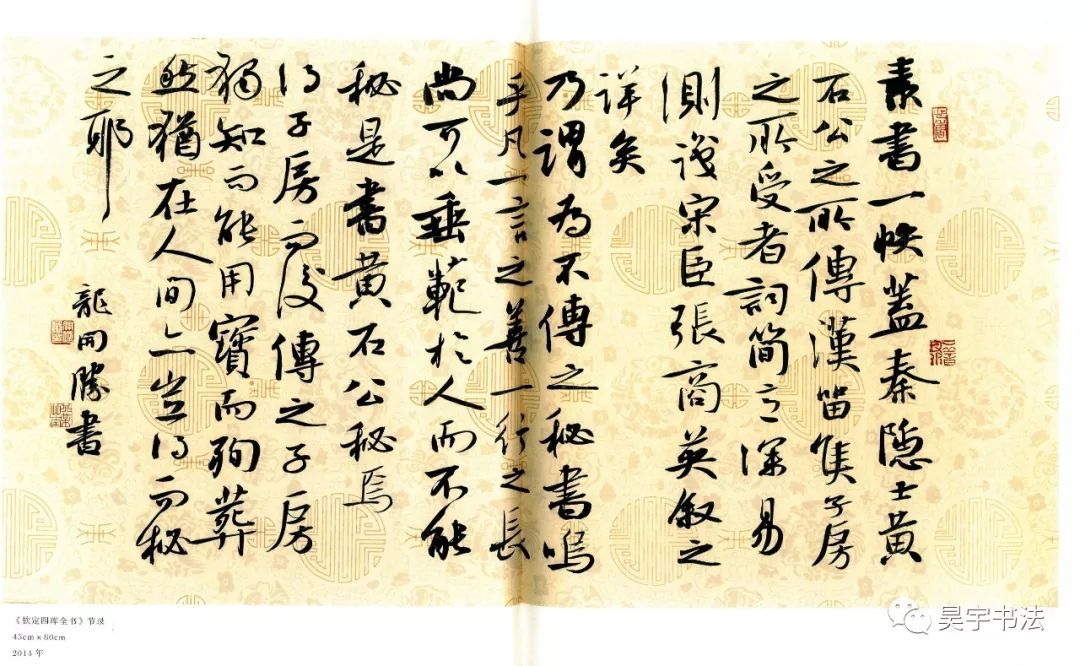 素書一帙蓋秦隱士黃
石公之所傳漢留侯子房
之所受者詞簡意深易
測識宋臣張商英叙之
詳矣
乃謂為不傳之秘書嗚
乎凡一言之善一行之長
尚可以垂範於人而不能
秘是書黃石公秘焉
得子房而後傳之子房
獨知而能用寶而殉葬
然猶在人間亦豈得而秘
之耶
龍開勝書
《钦定四库全书》节录
45cm×80cm
2014年
昊宇书法